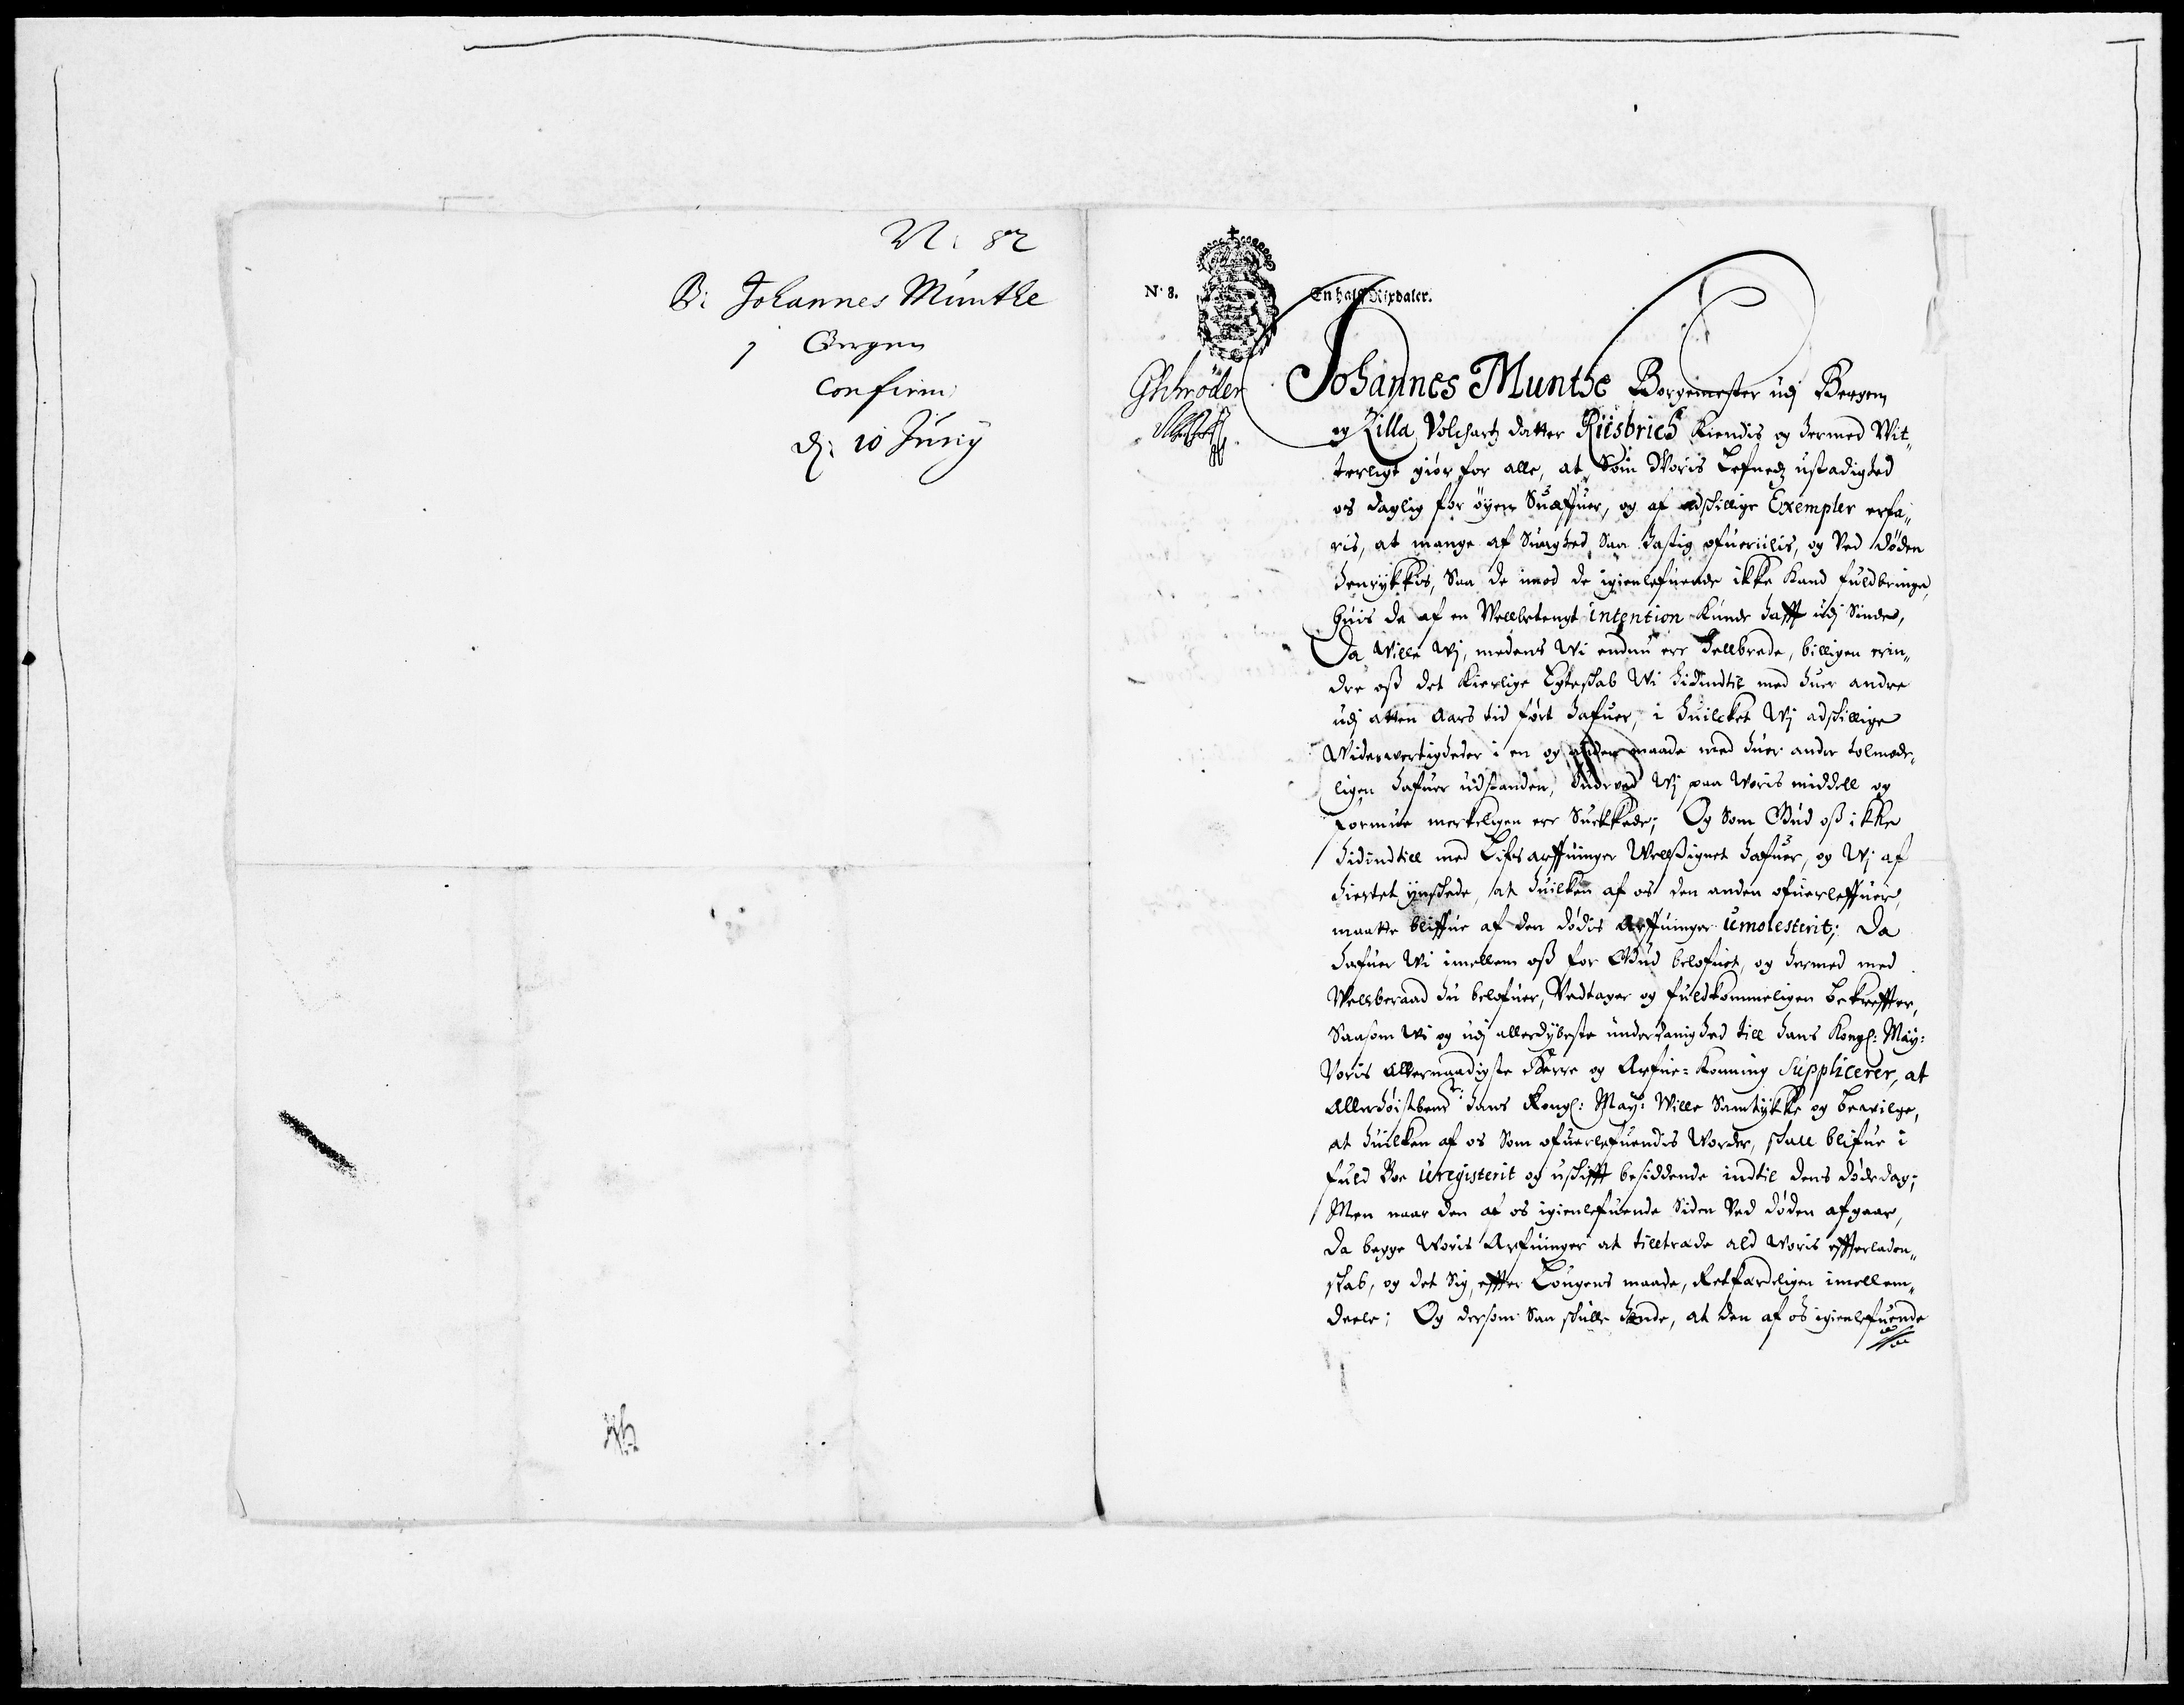 N: 82
B: Johannes Munthe
i Bergen
Confirm:
d: 10 Junij
N. 8.
En halff Rixdaler.
GSchröder
Johannes Munthe Borgemester udj Bergen
og Zilla Volchartz datter Riisbrich Kiendis og hermed Wit„
terligt giør for alle, at Som Woris Lefnedz ustadighed
os daglig for øyen Suæffuer, og af adskillige Exempler erfa„
ris, at mange af Suaghed Saa hastig ofueriilis, og Ved døden
henrykkis, Saa de imod de igienlefuende ikke Kand fuldbringe,
huis de af en Wellbetengt intention Kunde hafft udj Sinde,
Da Wille Wj, medens Wi endnu ere Hellbrede, billigen erin„
dre oss det Kierlige Egteskab Wi hidindtil med huer andre
udj atten Aars tid ført hafuer, i huilcket Wj adskillige
Widerwertigheder i en og anden maade med huer andre tolmode„
ligen hafuer udstanden, huorved Wj paa Woris middell og
formue merkeligen ere Suekkede; Og Som Gud oss ikke
hidindtill med Lifs arffuinger Wellsignet hafuer, og Wj af
hiertet ynskede, at huilken af os den anden ofuerleffuer,
maatte bliffue af den dødis Arffuinger umolesterit; Da
hafuer Wi imellem oss for Gud belofuet, og hermed med
Welberaad hu belofuer, Vedtager og fuldkommeligen bekreffter,
Saasom Wi og udj allerdybeste underdanighed till hans Kongl: May:
Voris Allernaadigste Herre og Arfue-Konning Supplicerer, at
Allerhøistbemte hans Kongl: May: Wille Samtykke og bevilge,
at huilken af os Som ofuerlefuendis Worder, skall blifue i
fuld Boe uregisterit og uskifft besiddende indtil dens dødedag;
Men naar den af os igienlefuende Siden Ved døden afgaar,
da begge Woris Arfuinger at tilltræde ald Woris effterladen„
skab, og det Sig, effter Lougens maade, Retfærdeligen imellem„
deele; Og dersom Saa skulle hende, at den af os igienlefuende